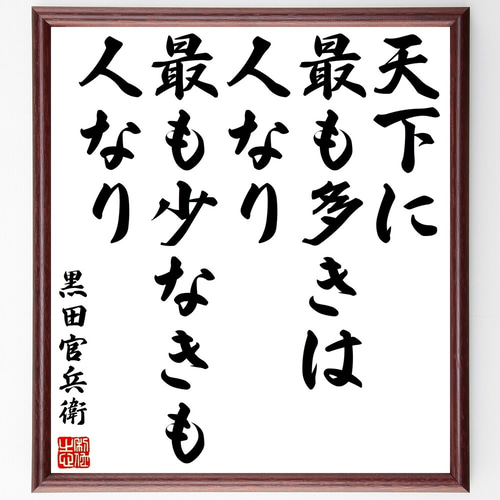 天下に
最も多きは
人なり
最も少なきも
人なり
黒田官兵衛